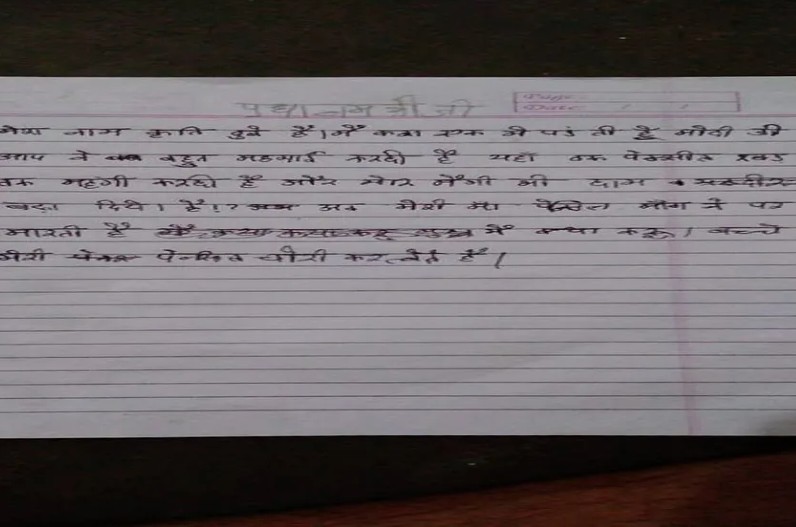 प्रधानमंत्री जी
मेरा नाम कृति दुबे है। मैं कक्षा एक में पढं ती हूँ मोदी जी
आप ने बहुत महगाई करदी है यहा तक पेन्सील रबड
तक महगी करदी है और मेरि मैगी की दाम
बढ़ा दिये। है।? अब मेरी मा पेन्सिल माग ने पर
मारती है मैं क्या करू। बच्चे
मेरी पेन्सिल चोरी कर लेते है।